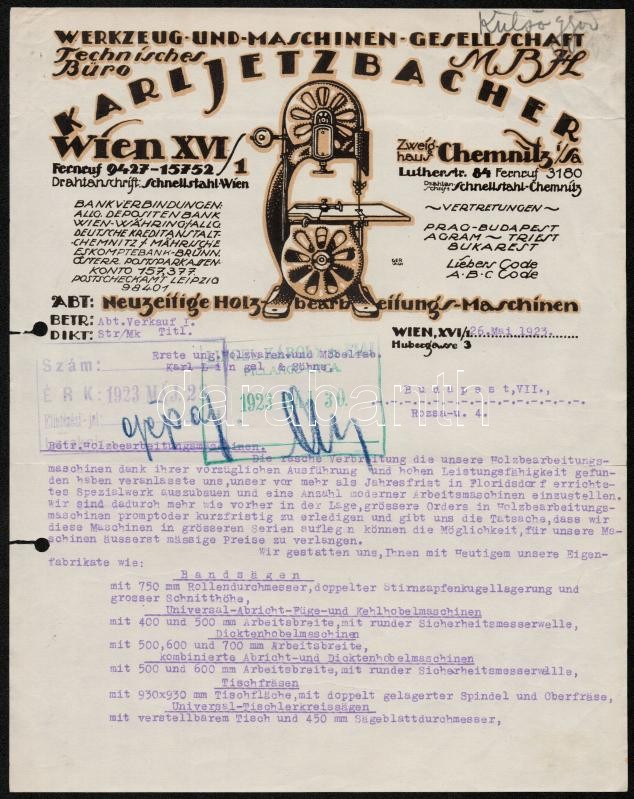 Külső
WERKZEUG-UND-MASCHINEN-GESELLSCHAFT
Technisches Büro
M.B.H.
KARL JETZBACHER
Wien XVI/1
Fernruf 9427-15752
Drahtanschrift: Schnellstahl-Wien
Zweighaus Chemnitz i/Sa
Lutherstr. 84 Fernruf 3180
Drahtanschrift: Schnellstahl-Chemnitz
BANKVERBINDUNGEN:
ALLG. DEPOSITEN BANK
WIEN-WÄHRING/ALLG.
DEUTSCHE KREDITANSTALT-
CHEMNITZ/MÄHRISCHE
ESKOMPTEBANK-BRÜNN.
ÖSTERR. POSTSPARKASSEN-
KONTO 157.377.
POSTSCHECKAMT LEIPZIG
98401
~VERTRETUNGEN~
PRAG-BUDAPEST
AGRAM~TRIEST
BUKAREST
Liebers Code
A·B·C Code
ABT: Neuzeitige Holz-bearbeitungs-Maschinen
BETR: Abt.Verkauf I.
DIKT: Str/Mk Titl.
WIEN, XVI/1. 26.Mai 1923.
Hubergasse 3
Erste ung.Holzwaren.und Möbelfab.
Karl L i n g e l & Söhne
B u d a p e s t ,VII.,
Rózsa-u. 4.
Szám:
ÉRK: 1923 MÁJ. 2
1923 30.
Betr.Holzbearbeitungsmaschinen.
Die rasche Verbreitung die unsere Holzbearbeitungs-
maschinen dank ihrer vorzüglichen Ausführung und hohen Leistungsfähigkeit gefun-
den haben veranlasste uns,unser vor mehr als Jahresfrist in Floridsdorf errichte-
tes Spezialwerk auszubauen und eine Anzahl moderner Arbeitsmaschinen einzustellen.
Wir sind dadurch mehr wie vorher in der Lage,grössere Orders in Holzbearbeitungs-
maschinen promptoder kurzfristig zu erledigen und gibt uns die Tatsache,dass wir
diese Maschinen in grösseren Serien auflegen können die Möglichkeit,für unsere Ma-
schinen äusserst mässige Preise zu verlangen.
Wir gestatten uns,Ihnen mit Heutigem unsere Eigen-
fabrikate wie:
B a n d s ä g e n
mit 750 mm Rollendurchmesser,doppelter Stirnzapfenkugellagerung und
grosser Schnitthöhe,
Universal-Abricht-Füge-und Kehlhobelmaschinen
mit 400 und 500 mm Arbeitsbreite,mit runder Sicherheitsmesserwelle,
Dicktenhobelmaschinen
mit 500,600 und 700 mm Arbeitsbreite,
kombinierte Abricht-und Dicktenhobelmaschinen
mit 500 und 600 mm Arbeitsbreite,mit runder Sicherheitsmesserwelle,
Tischfräsen
mit 930x930 mm Tischfläche,mit doppelt gelagerter Spindel und Oberfräse,
Universal-Tischlerkreissägen
mit verstellbarem Tisch und 450 mm Sägeblattdurchmesser,
darabanth